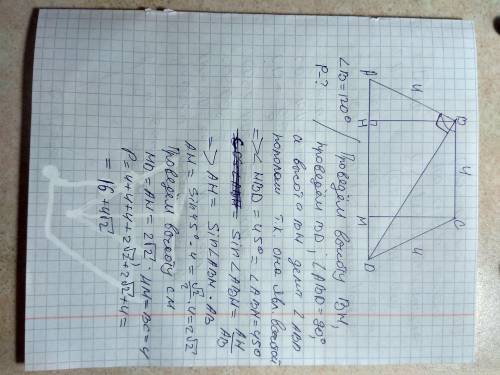 A
B
C
D
H
M
4
4
4
∠B=120°
P-?
Проведём высоту BH,
проведём BD. ∠ABD=90°,
а высота BH делит ∠ABD
пополам т.к она явл. высотой
=> ∠HBD=45°=∠ABH=45°
= sin∠ABH = AH/AB
=> AH = sin∠ABH · AB
AH = sin45°·4 = √2/2·4=2√2
Проведём высоту CM
MD=AH=2√2 · HM=BC=4
P=4+4+4+2√2+2√2+4=
= 16+4√2